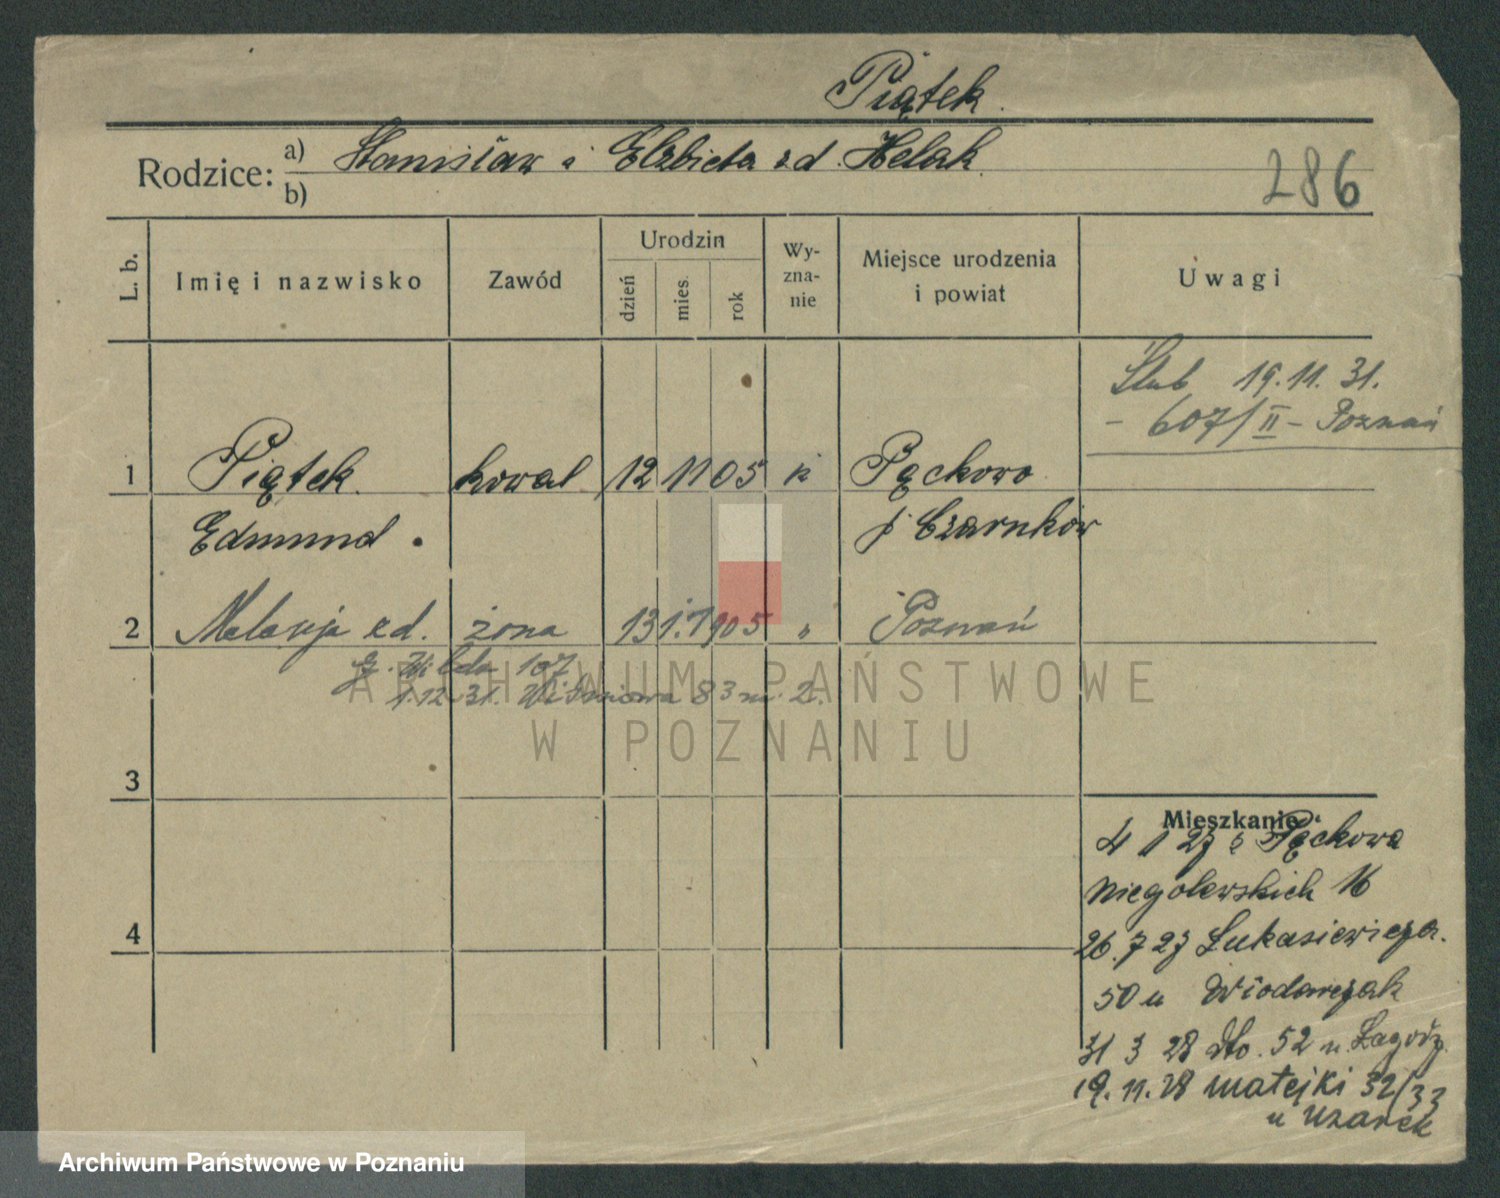 Piątek
Rodzice: a) Stanisław i Elżbieta zd. Helak
b)
286
L. b.
Imię i nazwisko
Zawód
Urodzin
dzień
mies.
rok
Wy-
zna-
nie
Miejsce urodzenia
i powiat
Uwagi
Ślub 19.11.31.
- 607/II - Poznań
1 Piątek kowal 12 11 05 k Pęckowo
Edmund. p Czarnków
2 zd. żona 13 1. 1905 " Poznań
Wilda 107
1.12.31. Wiśniowa 83 m. 2.
3
4
Mieszkanie:
4 1 27 z Pęckowa
Niegolewskich 16
26.7 27 Łukasiewicza
50 u Włodarczak
31 3 28 dto. 52 u.
19.11.28 Matejki 32/33
u
ARCHIWUM PAŃSTWOWE
W POZNANIU
Archiwum Państwowe w Poznaniu